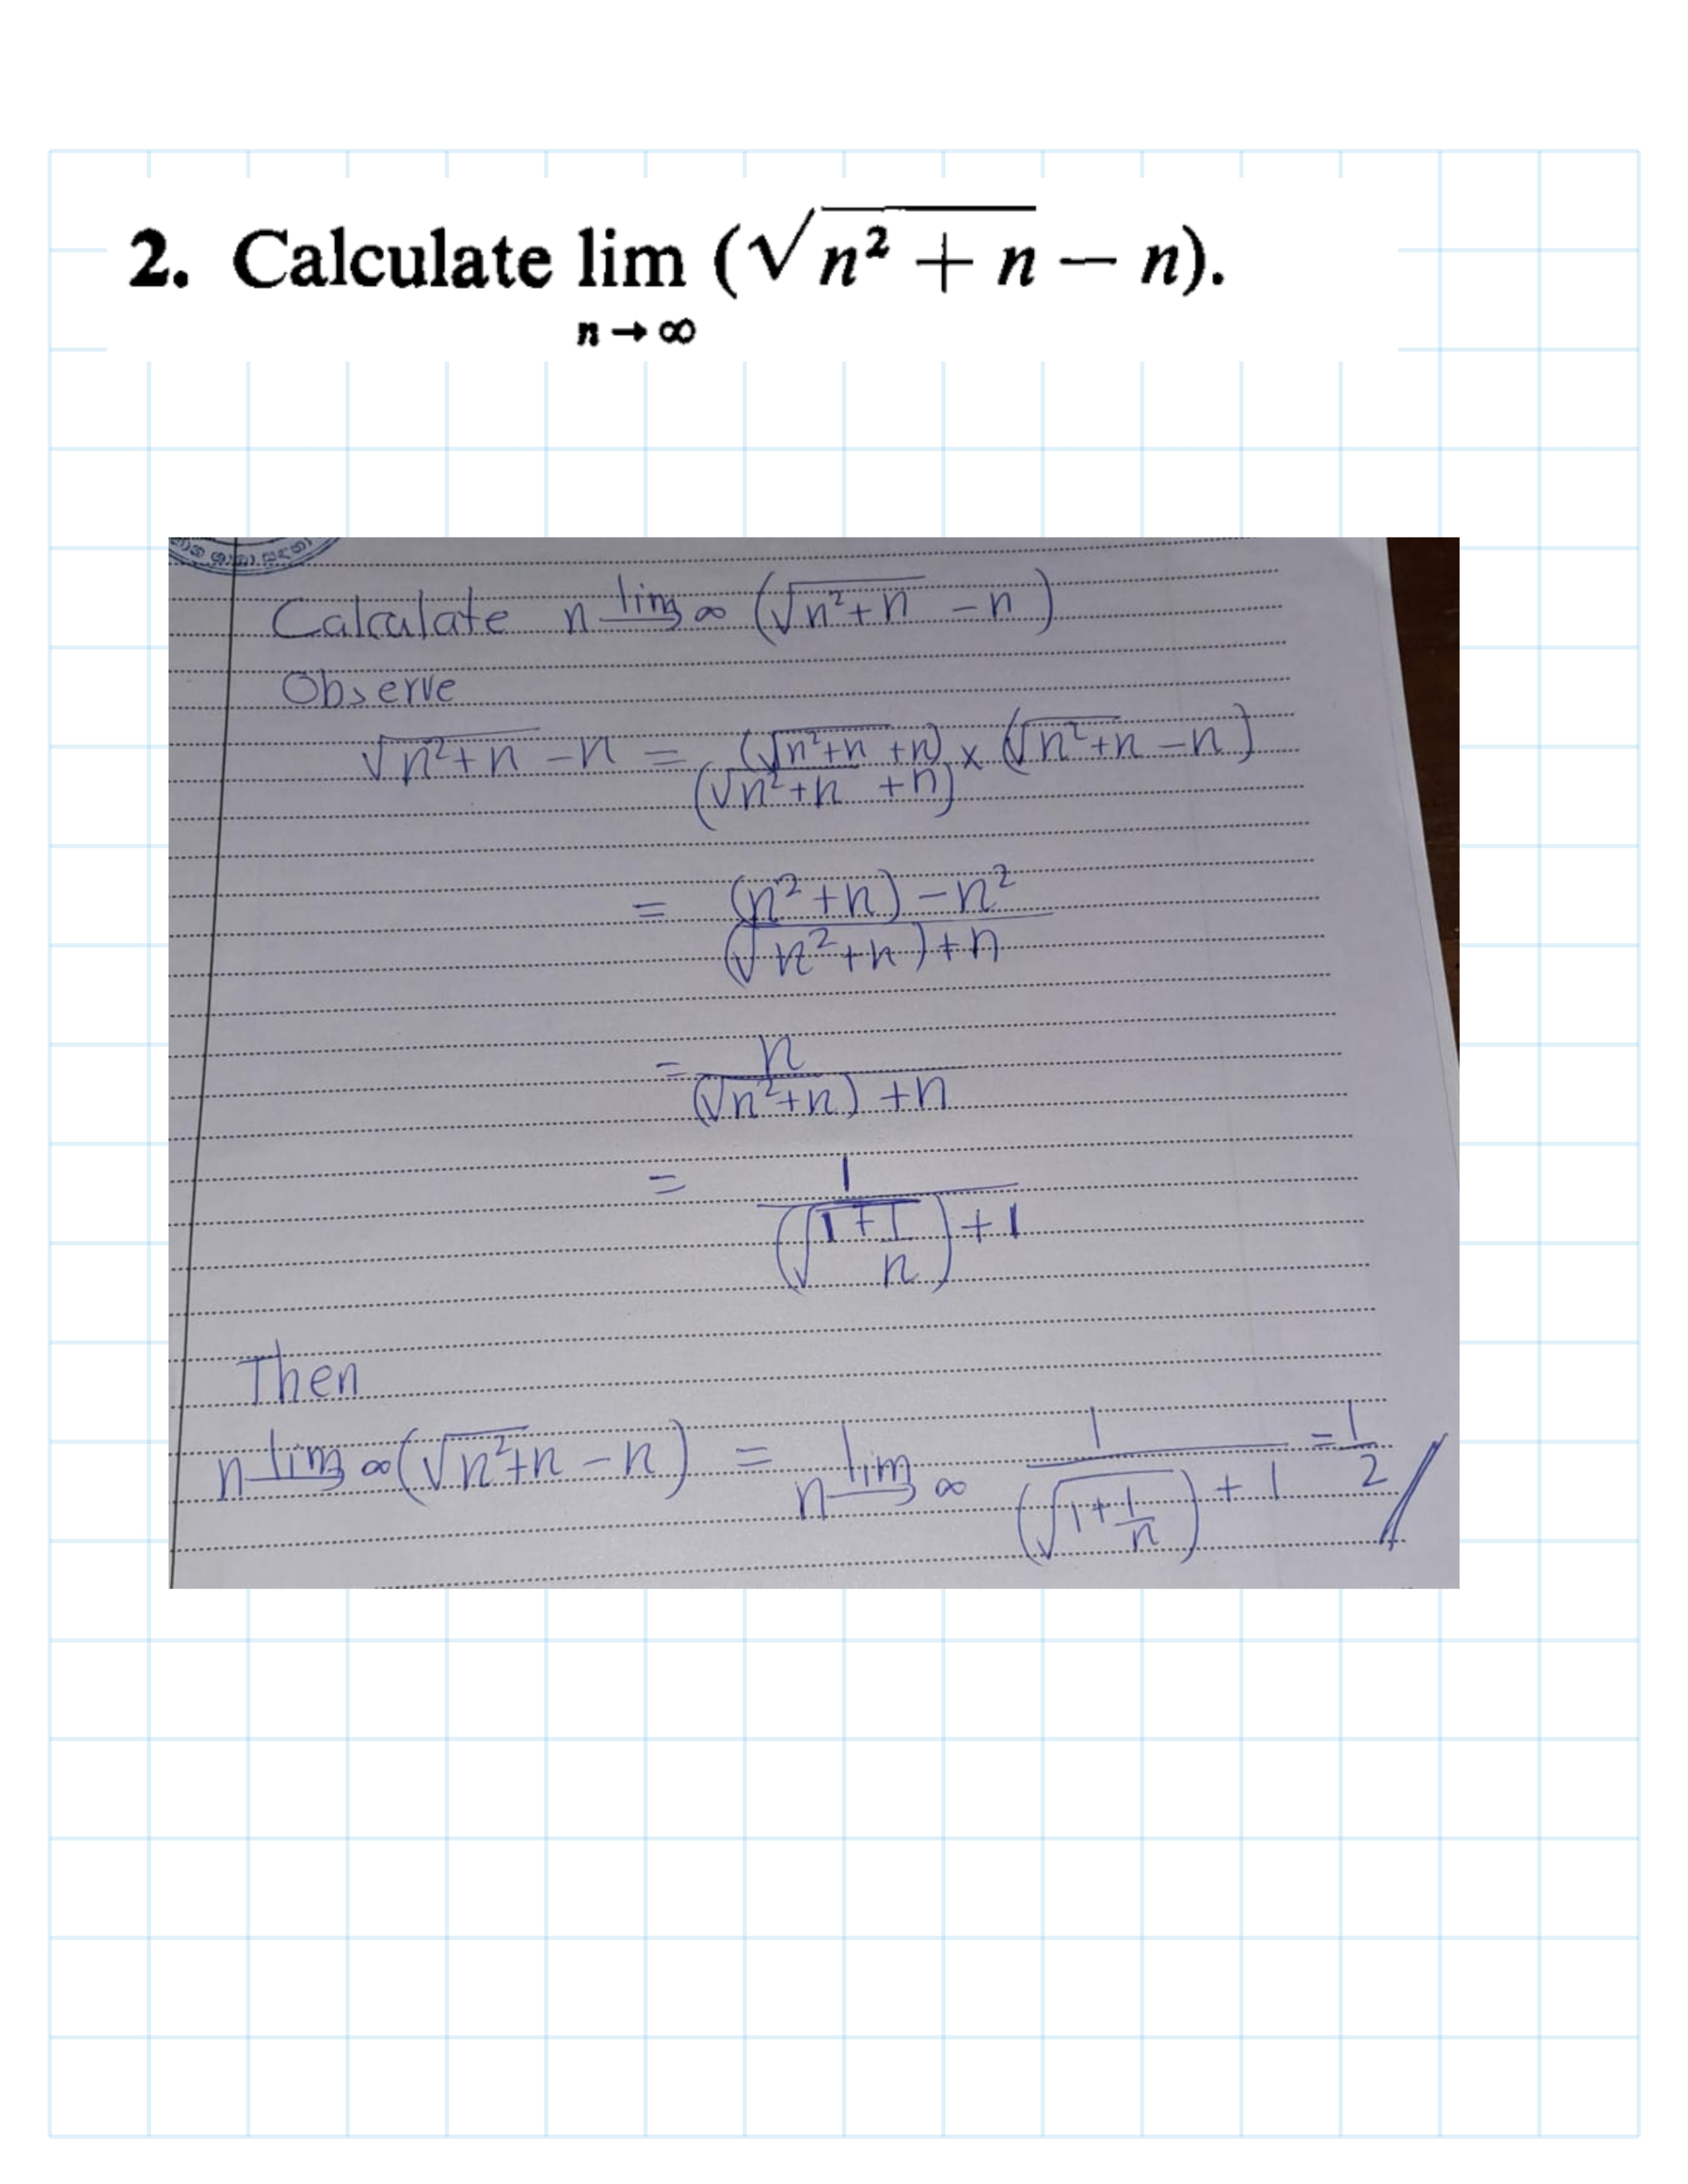 2. Calculate lim (√n² + n − n).
n → ∞
Calculate n lim→ ∞ (√n²+n − n)
Observe
√n²+n − n = (√n²+n + n) × (√n²+n − n)
(√n²+n + n)
= (n²+n) − n²
(√n²+n) + n
= n
(√n²+n) + n
= 1
(√1 + 1/n) + 1
Then
n lim→ ∞ (√n²+n − n) = n lim→ ∞ 1 = 1/2
(√1 + 1/n) + 1